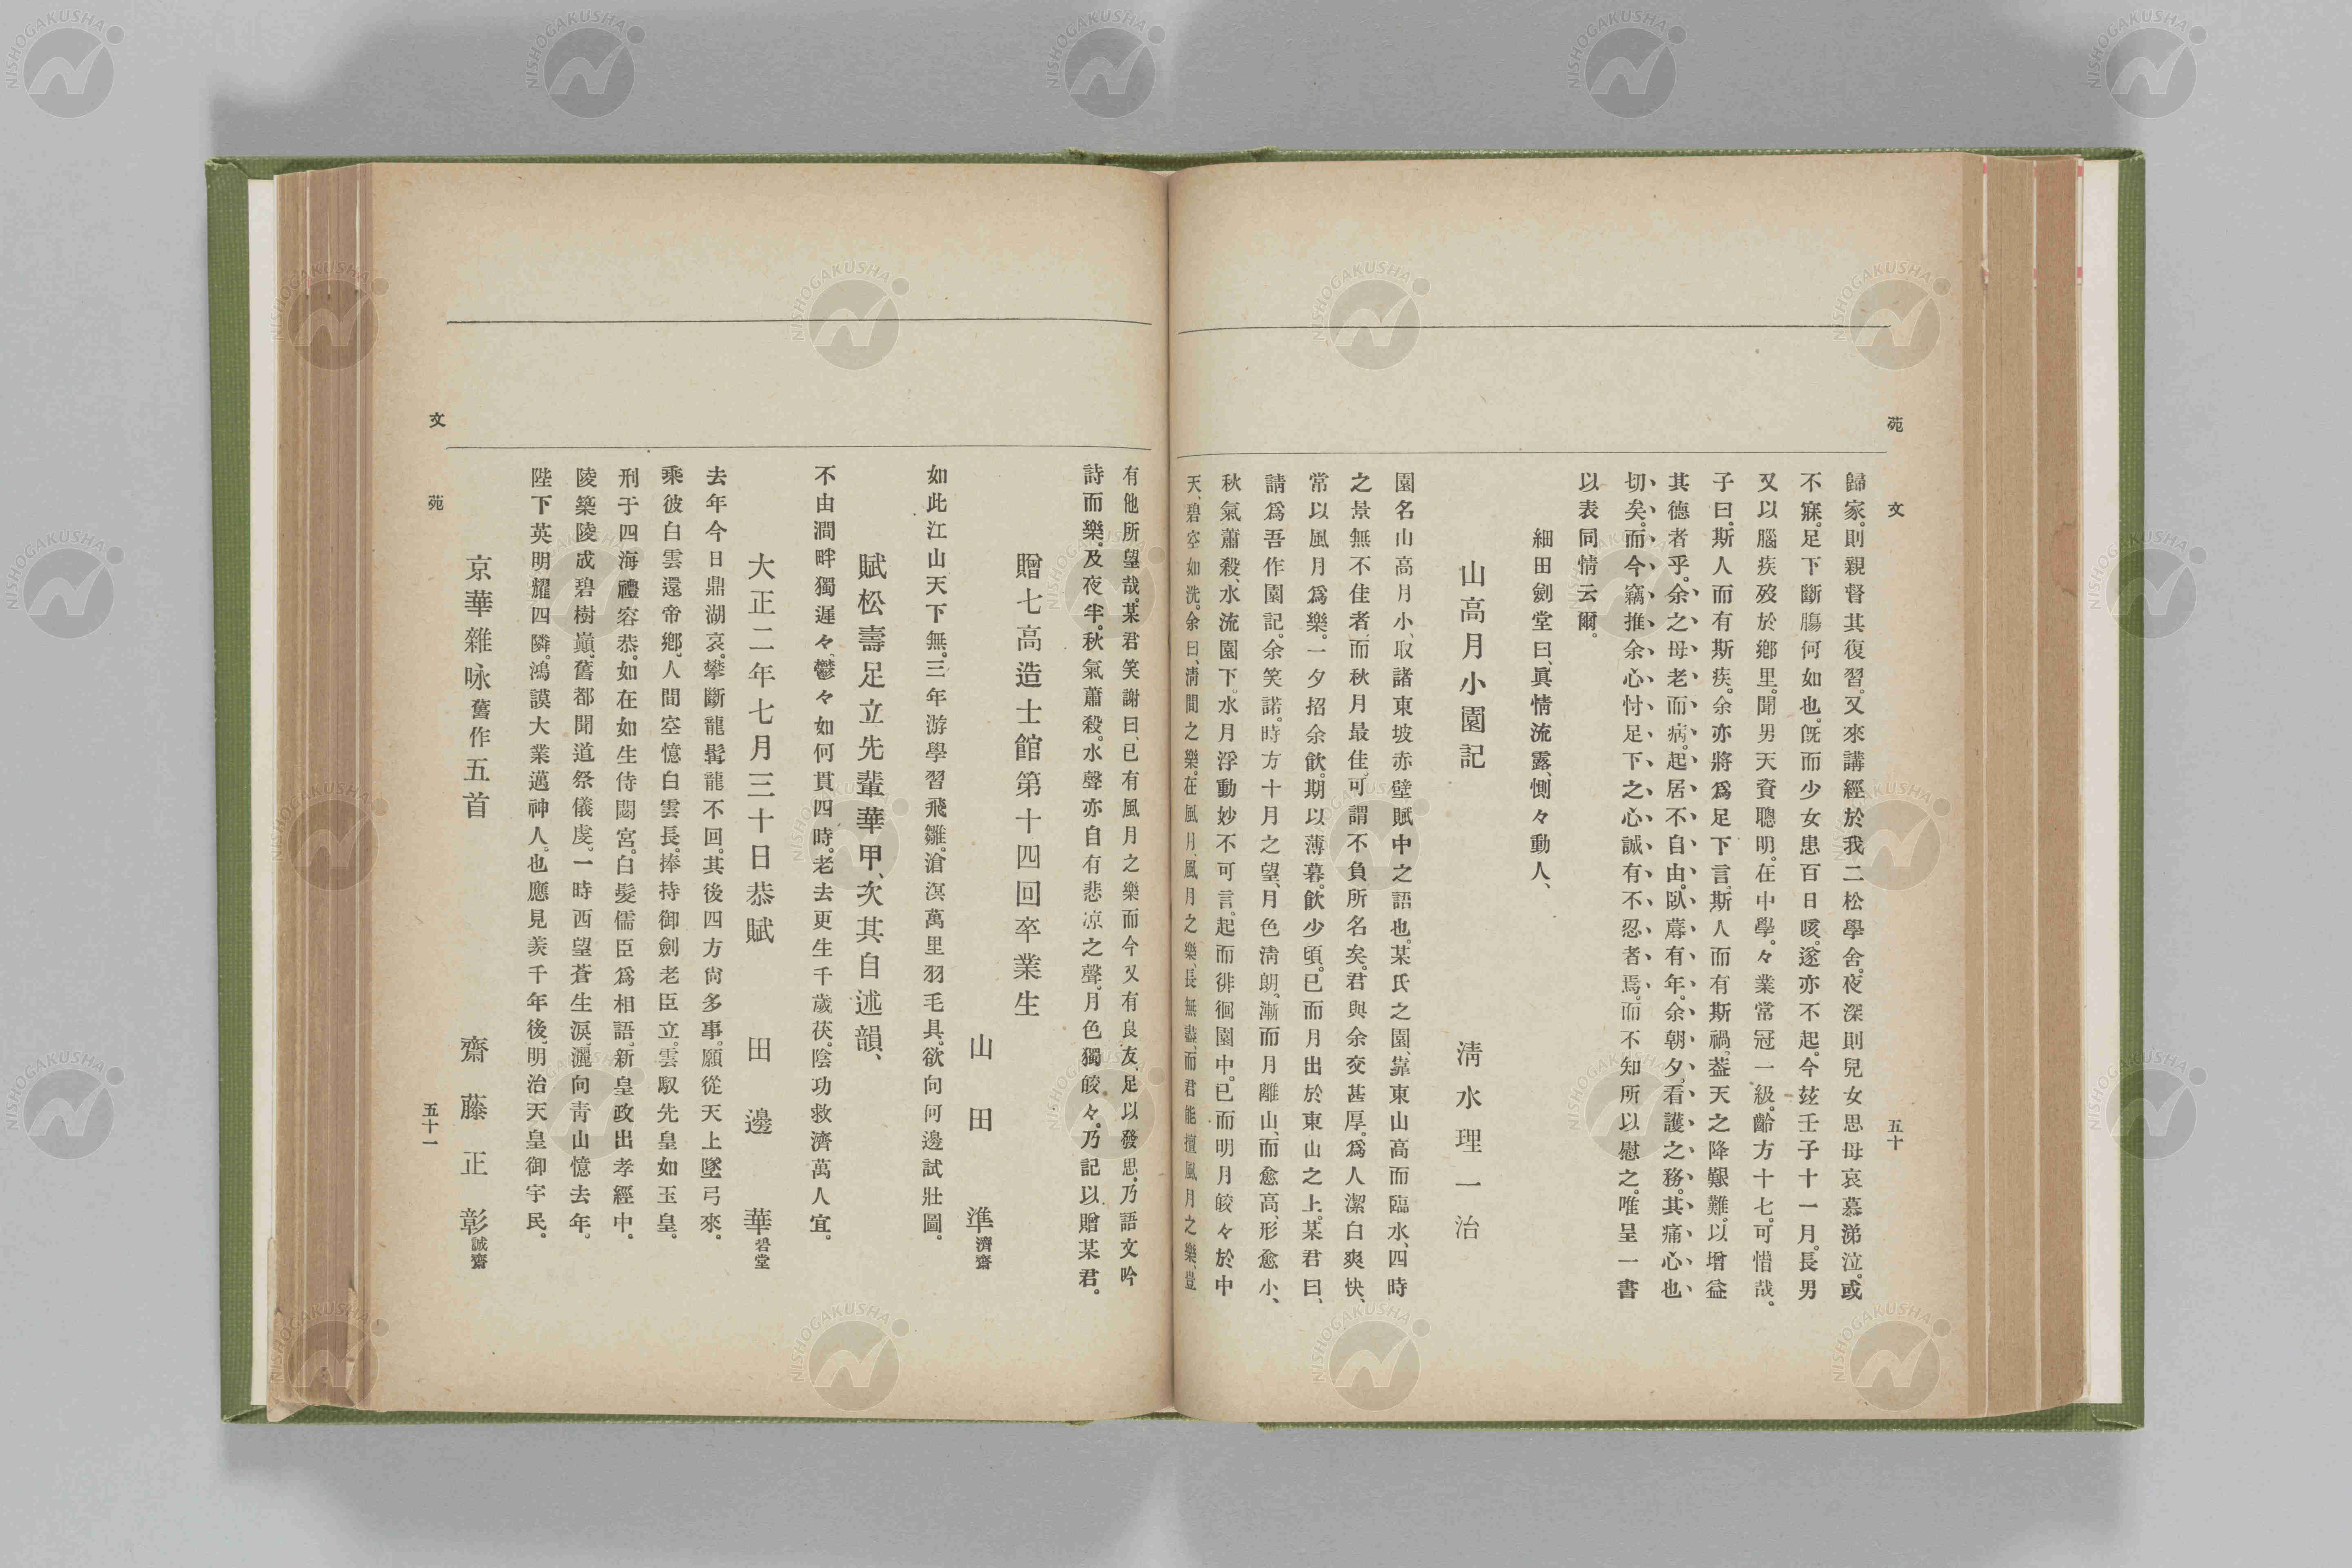 苑 文
五十
歸家。則親督其復習。又來講經於我二松學舍。夜深則兒女思母哀慕涕泣。或
不寐。足下斷膓何如也。旣而少女患百日咳。遂亦不起。今玆壬子十一月。長男
又以腦疾歿於鄕里。聞男天資聰明。在中學。々業常冠一級。齡方十七。可惜哉。
子曰。斯人而有斯疾。余亦將爲足下言。斯人而有斯禍。葢天之降艱難。以增益
其德者乎。余之母老而病。起居不自由。臥蓐有年。余朝夕看護之務。其痛心也
切矣。而今竊推余心忖足下之心。誠有不忍者焉。而不知所以慰之。唯呈一書
以表同情云爾。
細田劍堂曰、眞情流露、惻々動人、
山高月小園記
淸水理一治
園名山高月小、取諸東坡赤壁賦中之語也。某氏之園、靠東山高而臨水、四時
之景無不佳者、而秋月最佳、可謂不負所名矣。君與余交甚厚。爲人潔白爽快、
常以風月爲樂。一夕招余飮。期以薄暮。飮少頃。已而月出於東山之上。某君曰、
請爲吾作園記。余笑諾。時方十月之望、月色淸朗。漸而月離山、而愈高、形愈小、
秋氣蕭殺、水流園下。水月浮動妙不可言。起而徘徊園中。已而明月皎々於中
天、碧空如洗。余曰、淸閒之樂。在風月、風月之樂、長無盡、而君能擅風月之樂、豈
有他所望哉。某君笑謝曰、已有風月之樂而今又有良友、足以發思。乃語文吟
詩而樂。及夜半。秋氣蕭殺。水聲亦自有悲凉之聲。月色獨皎々。乃記以贈某君。
贈七高造士館第十四回卒業生
山田準濟齋
如此江山天下無。三年游學習飛雛。滄溟萬里羽毛具。欲向何邊試壯圖。
賦松壽足立先輩華甲、次其自述韻、
不由澗畔獨遲々、鬱々如何貫四時。老去更生千歲茯。陰功救濟萬人宜。
大正二年七月三十日恭賦
田邊華碧堂
去年今日鼎湖哀。攀斷龍髯龍不回。其後四方尙多事。願從天上墜弓來。
乘彼白雲還帝鄕。人間空憶白雲長。捧持御劍老臣立。雲馭先皇如玉皇。
刑于四海禮容恭。如在如生侍閟宮。白髮儒臣爲相語。新皇政出孝經中。
陵築陵成碧樹巓。舊都聞道祭儀虔。一時西望蒼生淚。灑向靑山憶去年。
陛下英明耀四隣。鴻謨大業邁神人。也應見羨千年後、明治天皇御宇民。
京華雜咏舊作五首
齋藤正彰誠齋
文 苑
五十一